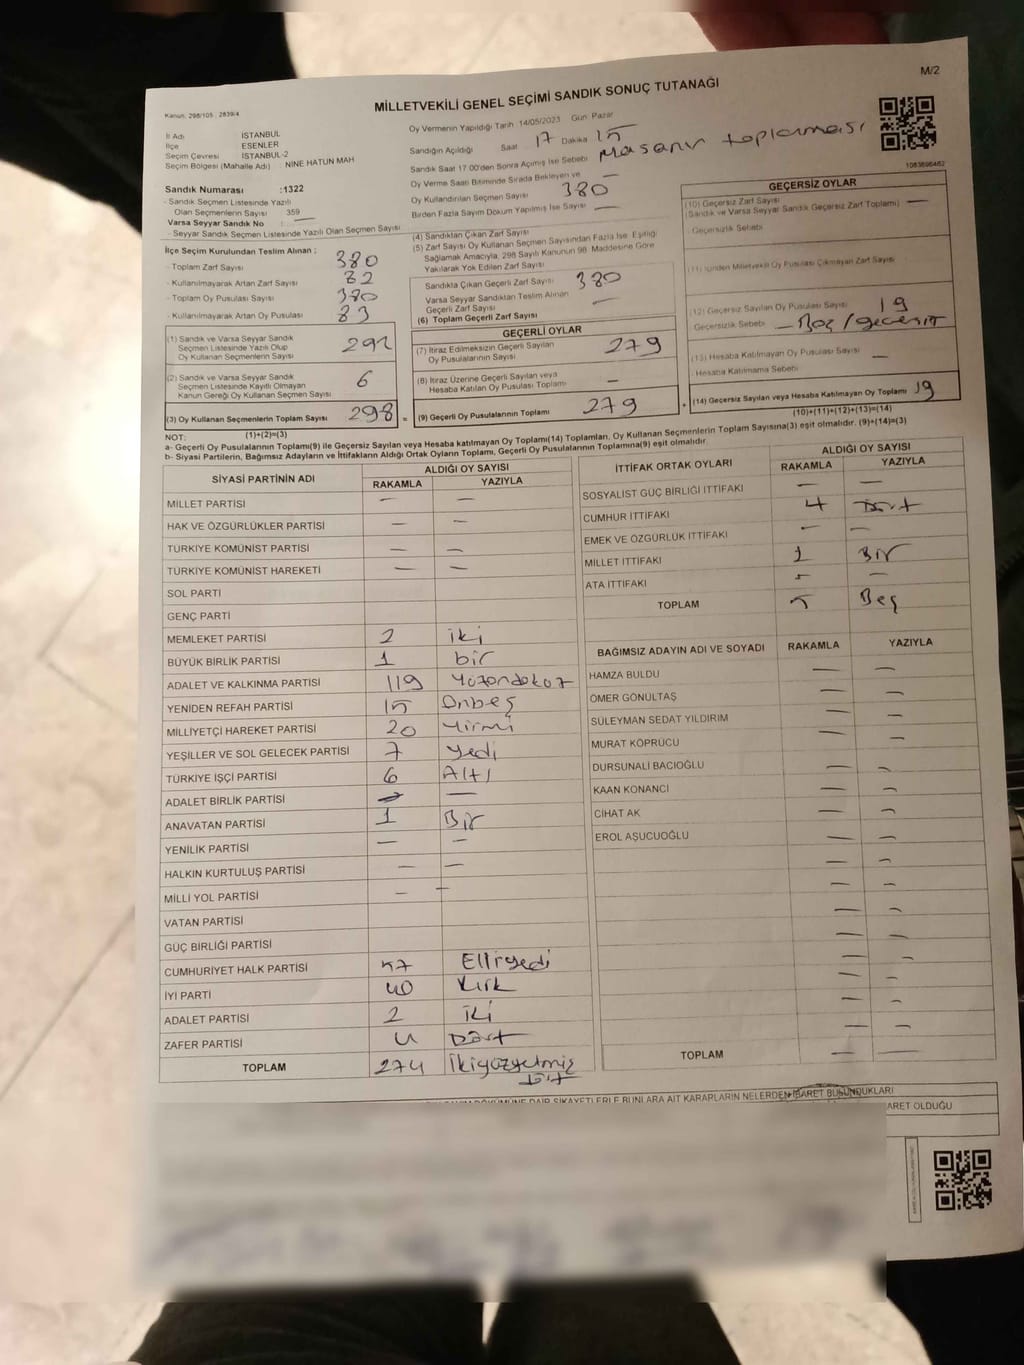 M/2
MİLLETVEKİLİ GENEL SEÇİMİ SANDIK SONUÇ TUTANAĞI
Kanun: 298/105 , 2839/4
İl Adı İSTANBUL
İlçe ESENLER
Seçim Çevresi İSTANBUL-2
Seçim Bölgesi (Mahalle Adı) NİNE HATUN MAH
Oy Vermenin Yapıldığı Tarih 14/05/2023 Gün Pazar
Sandığın Açıldığı Saat 17 Dakika 15
Sandık Saat 17.00'den Sonra Açılmış İse Sebebi Masanın toplanması
Oy Verme Saati Bitiminde Sırada Bekleyen ve —
Oy Kullandırılan Seçmen Sayısı 380
Birden Fazla Sayım Döküm Yapılmış İse Sayısı —
1083896462
Sandık Numarası :1322
- Sandık Seçmen Listesinde Yazılı
Olan Seçmenlerin Sayısı 359
Varsa Seyyar Sandık No : —
- Seyyar Sandık Seçmen Listesinde Yazılı Olan Seçmen Sayısı
İlçe Seçim Kurulundan Teslim Alınan ;
- Toplam Zarf Sayısı : 380
- Kullanılmayarak Artan Zarf Sayısı : 82
- Toplam Oy Pusulası Sayısı : 380
- Kullanılmayarak Artan Oy Pusulası : 83
(1) Sandık ve Varsa Seyyar Sandık
Seçmen Listesinde Yazılı Olup
Oy Kullanan Seçmenlerin Sayısı 292
(2) Sandık ve Varsa Seyyar Sandık
Seçmen Listesinde Kayıtlı Olmayan
Kanun Gereği Oy Kullanan Seçmen Sayısı 6
(3) Oy Kullanan Seçmenlerin Toplam Sayısı 298
(1)+(2)=(3)
(4) Sandıktan Çıkan Zarf Sayısı
(5) Zarf Sayısı Oy Kullanan Seçmen Sayısından Fazla İse, Eşitliği
Sağlamak Amacıyla, 298 Sayılı Kanunun 98. Maddesine Göre
Yakılarak Yok Edilen Zarf Sayısı
Sandıkta Çıkan Geçerli Zarf Sayısı 380
Varsa Seyyar Sandıktan Teslim Alınan
Geçerli Zarf Sayısı —
(6) Toplam Geçerli Zarf Sayısı
GEÇERLİ OYLAR
(7) İtiraz Edilmeksizin Geçerli Sayılan
Oy Pusulalarının Sayısı 279
(8) İtiraz Üzerine Geçerli Sayılan veya
Hesaba Katılan Oy Pusulası Toplamı —
= (9) Geçerli Oy Pusulalarının Toplamı 279
GEÇERSİZ OYLAR
(10) Geçersiz Zarf Sayısı —
(Sandık ve Varsa Seyyar Sandık Geçersiz Zarf Toplamı)
- Geçersizlik Sebebi
(11) İçinden Milletvekili Oy Pusulası Çıkmayan Zarf Sayısı
(12) Geçersiz Sayılan Oy Pusulası Sayısı 19
Geçersizlik Sebebi — Boş / geçersiz
(13) Hesaba Katılmayan Oy Pusulası Sayısı —
- Hesaba Katılmama Sebebi
+ (14) Geçersiz Sayılan veya Hesaba Katılmayan Oy Toplamı 19
(10)+(11)+(12)+(13)=(14)
NOT:
a- Geçerli Oy Pusulalarının Toplamı(9) ile Geçersiz Sayılan veya Hesaba katılmayan Oy Toplamı(14) Toplamları, Oy Kullanan Seçmenlerin Toplam Sayısına(3) eşit olmalıdır. (9)+(14)=(3)
b- Siyasi Partilerin, Bağımsız Adayların ve İttifakların Aldığı Ortak Oyların Toplamı, Geçerli Oy Pusulalarının Toplamına(9) eşit olmalıdır.
SİYASİ PARTİNİN ADI ALDIĞI OY SAYISI
RAKAMLA YAZIYLA
MİLLET PARTİSİ — —
HAK VE ÖZGÜRLÜKLER PARTİSİ — —
TÜRKİYE KOMÜNİST PARTİSİ — —
TÜRKİYE KOMÜNİST HAREKETİ — —
SOL PARTİ
GENÇ PARTİ
MEMLEKET PARTİSİ 2 iki
BÜYÜK BİRLİK PARTİSİ 1 bir
ADALET VE KALKINMA PARTİSİ 119 Yüzondokuz
YENİDEN REFAH PARTİSİ 15 Onbeş
MİLLİYETÇİ HAREKET PARTİSİ 20 Yirmi
YEŞİLLER VE SOL GELECEK PARTİSİ 7 Yedi
TÜRKİYE İŞÇİ PARTİSİ 6 Altı
ADALET BİRLİK PARTİSİ — —
ANAVATAN PARTİSİ 1 Bir
YENİLİK PARTİSİ — —
HALKIN KURTULUŞ PARTİSİ — —
MİLLİ YOL PARTİSİ — —
VATAN PARTİSİ
GÜÇ BİRLİĞİ PARTİSİ
CUMHURİYET HALK PARTİSİ 57 Elliyedi
İYİ PARTİ 40 Kırk
ADALET PARTİSİ 2 iki
ZAFER PARTİSİ 4 Dört
TOPLAM 274 İkiyüzyetmiş
dört
İTTİFAK ORTAK OYLARI ALDIĞI OY SAYISI
RAKAMLA YAZIYLA
SOSYALİST GÜÇ BİRLİĞİ İTTİFAKI — —
CUMHUR İTTİFAKI 4 Dört
EMEK VE ÖZGÜRLÜK İTTİFAKI — —
MİLLET İTTİFAKI 1 Bir
ATA İTTİFAKI — —
TOPLAM 5 Beş
BAĞIMSIZ ADAYIN ADI VE SOYADI RAKAMLA YAZIYLA
HAMZA BULDU — —
ÖMER GÖNÜLTAŞ — —
SÜLEYMAN SEDAT YILDIRIM — —
MURAT KÖPRÜCÜ — —
DURSUNALİ BACIOĞLU — —
KAAN KONANCI — —
CİHAT AK — —
EROL AŞUCUOĞLU — —
TOPLAM — —
DÖKÜMÜNE DAİR ŞİKAYETLERLE BUNLARA AİT KARARLARIN NELERDEN İBARET BULUNDUKLARI
ARET OLDUĞU